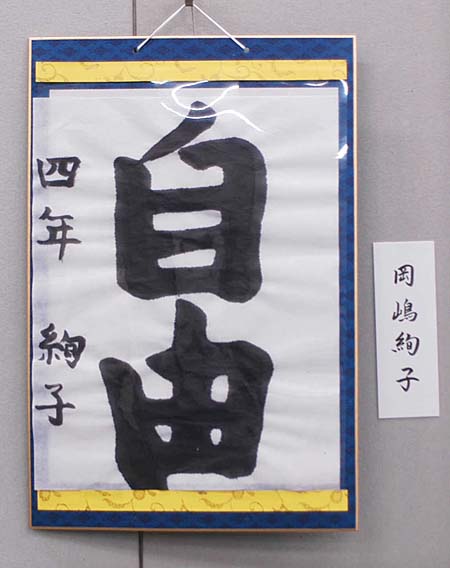 自由
四年 絢子
岡嶋絢子